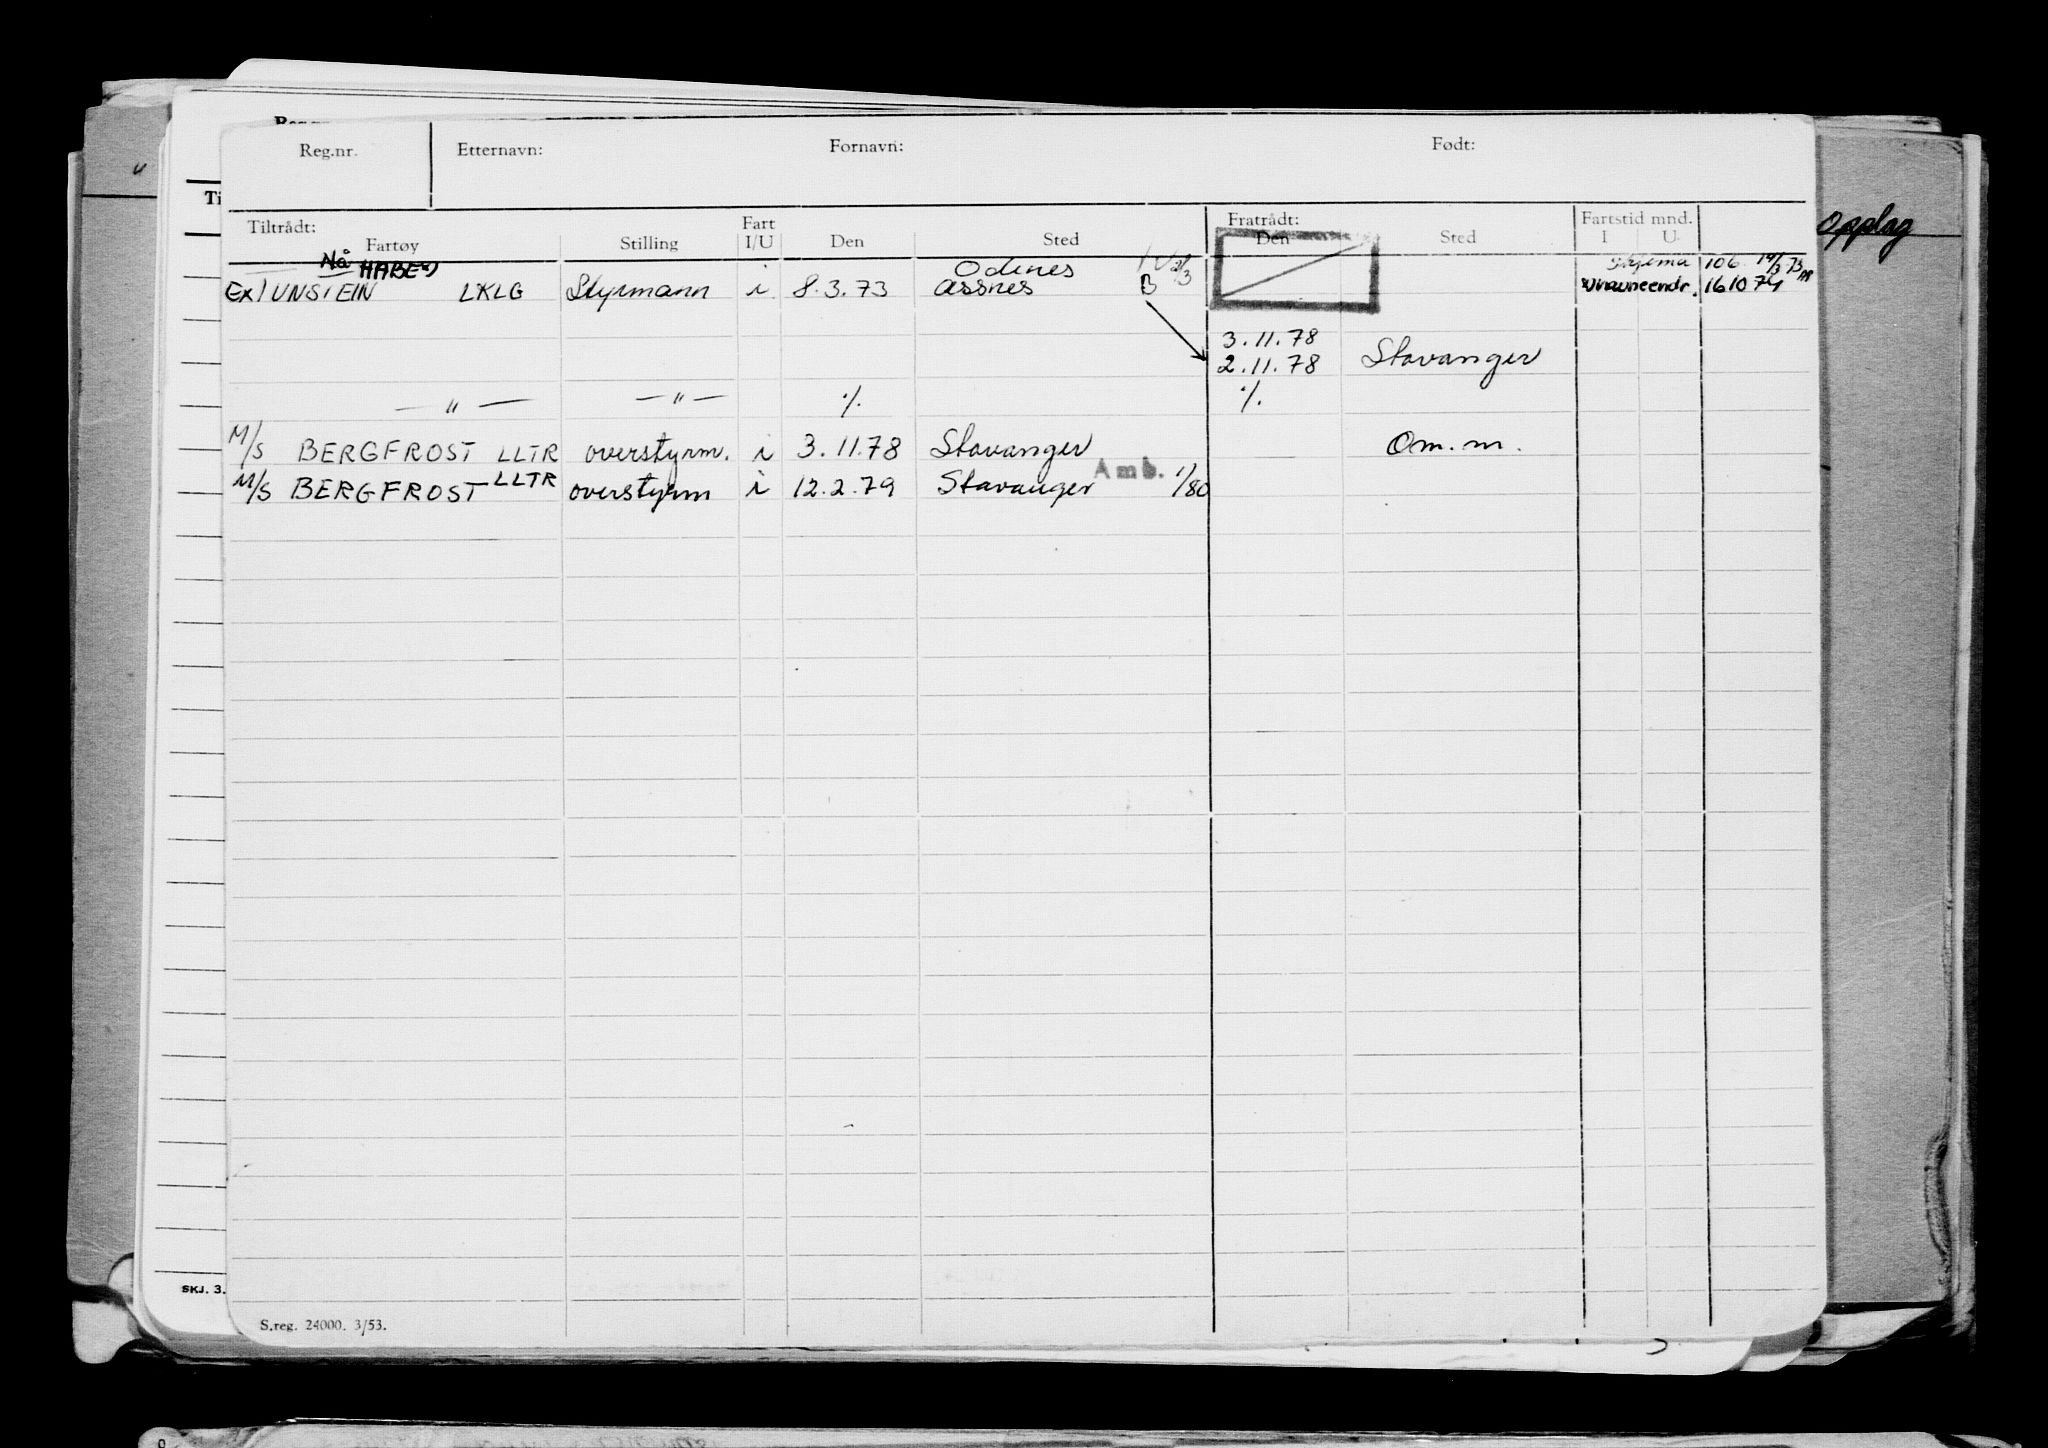 Reg.nr. Etternavn: Fornavn: Født:
Tiltrådt: Fart Fratrådt: Fartstid mnd.
Fartøy Stilling I/U Den Sted Den Sted I U
Opplag
Nå Odines 106
Ex LKLG Styrmann i 8.3.73 Assnes B 161074
3.11.78
2.11.78 Stavanger
— " — — " — ·/. ·/.
M/S BERGFROST LLTR overstyrm. i 3.11.78 Stavanger Om.m.
M/S BERGFROST LLTR overstyrm i 12.2.79 Stavanger Amb. 1/80
SKJ. 3.
S.reg. 24000. 3/53.